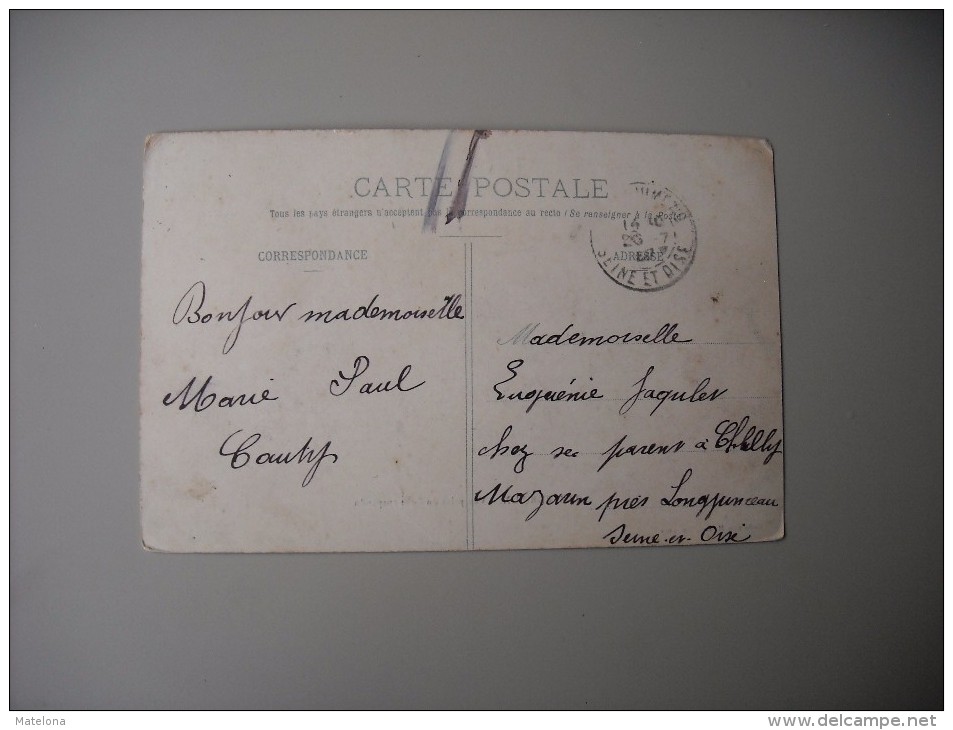 CARTE POSTALE
Tous les pays étrangers n'acceptent pas la correspondance au recto (Se renseigner à la Poste)
CORRESPONDANCE
ADRESSE
SEINE ET OISE
Bonjour mademoiselle
Marie Paul
Mademoiselle
Euguénie Jagulet
chez se parent à Chilly
Mazarin près Longjumeau
Seine-et-Oise
Matelona
www.delcampe.net